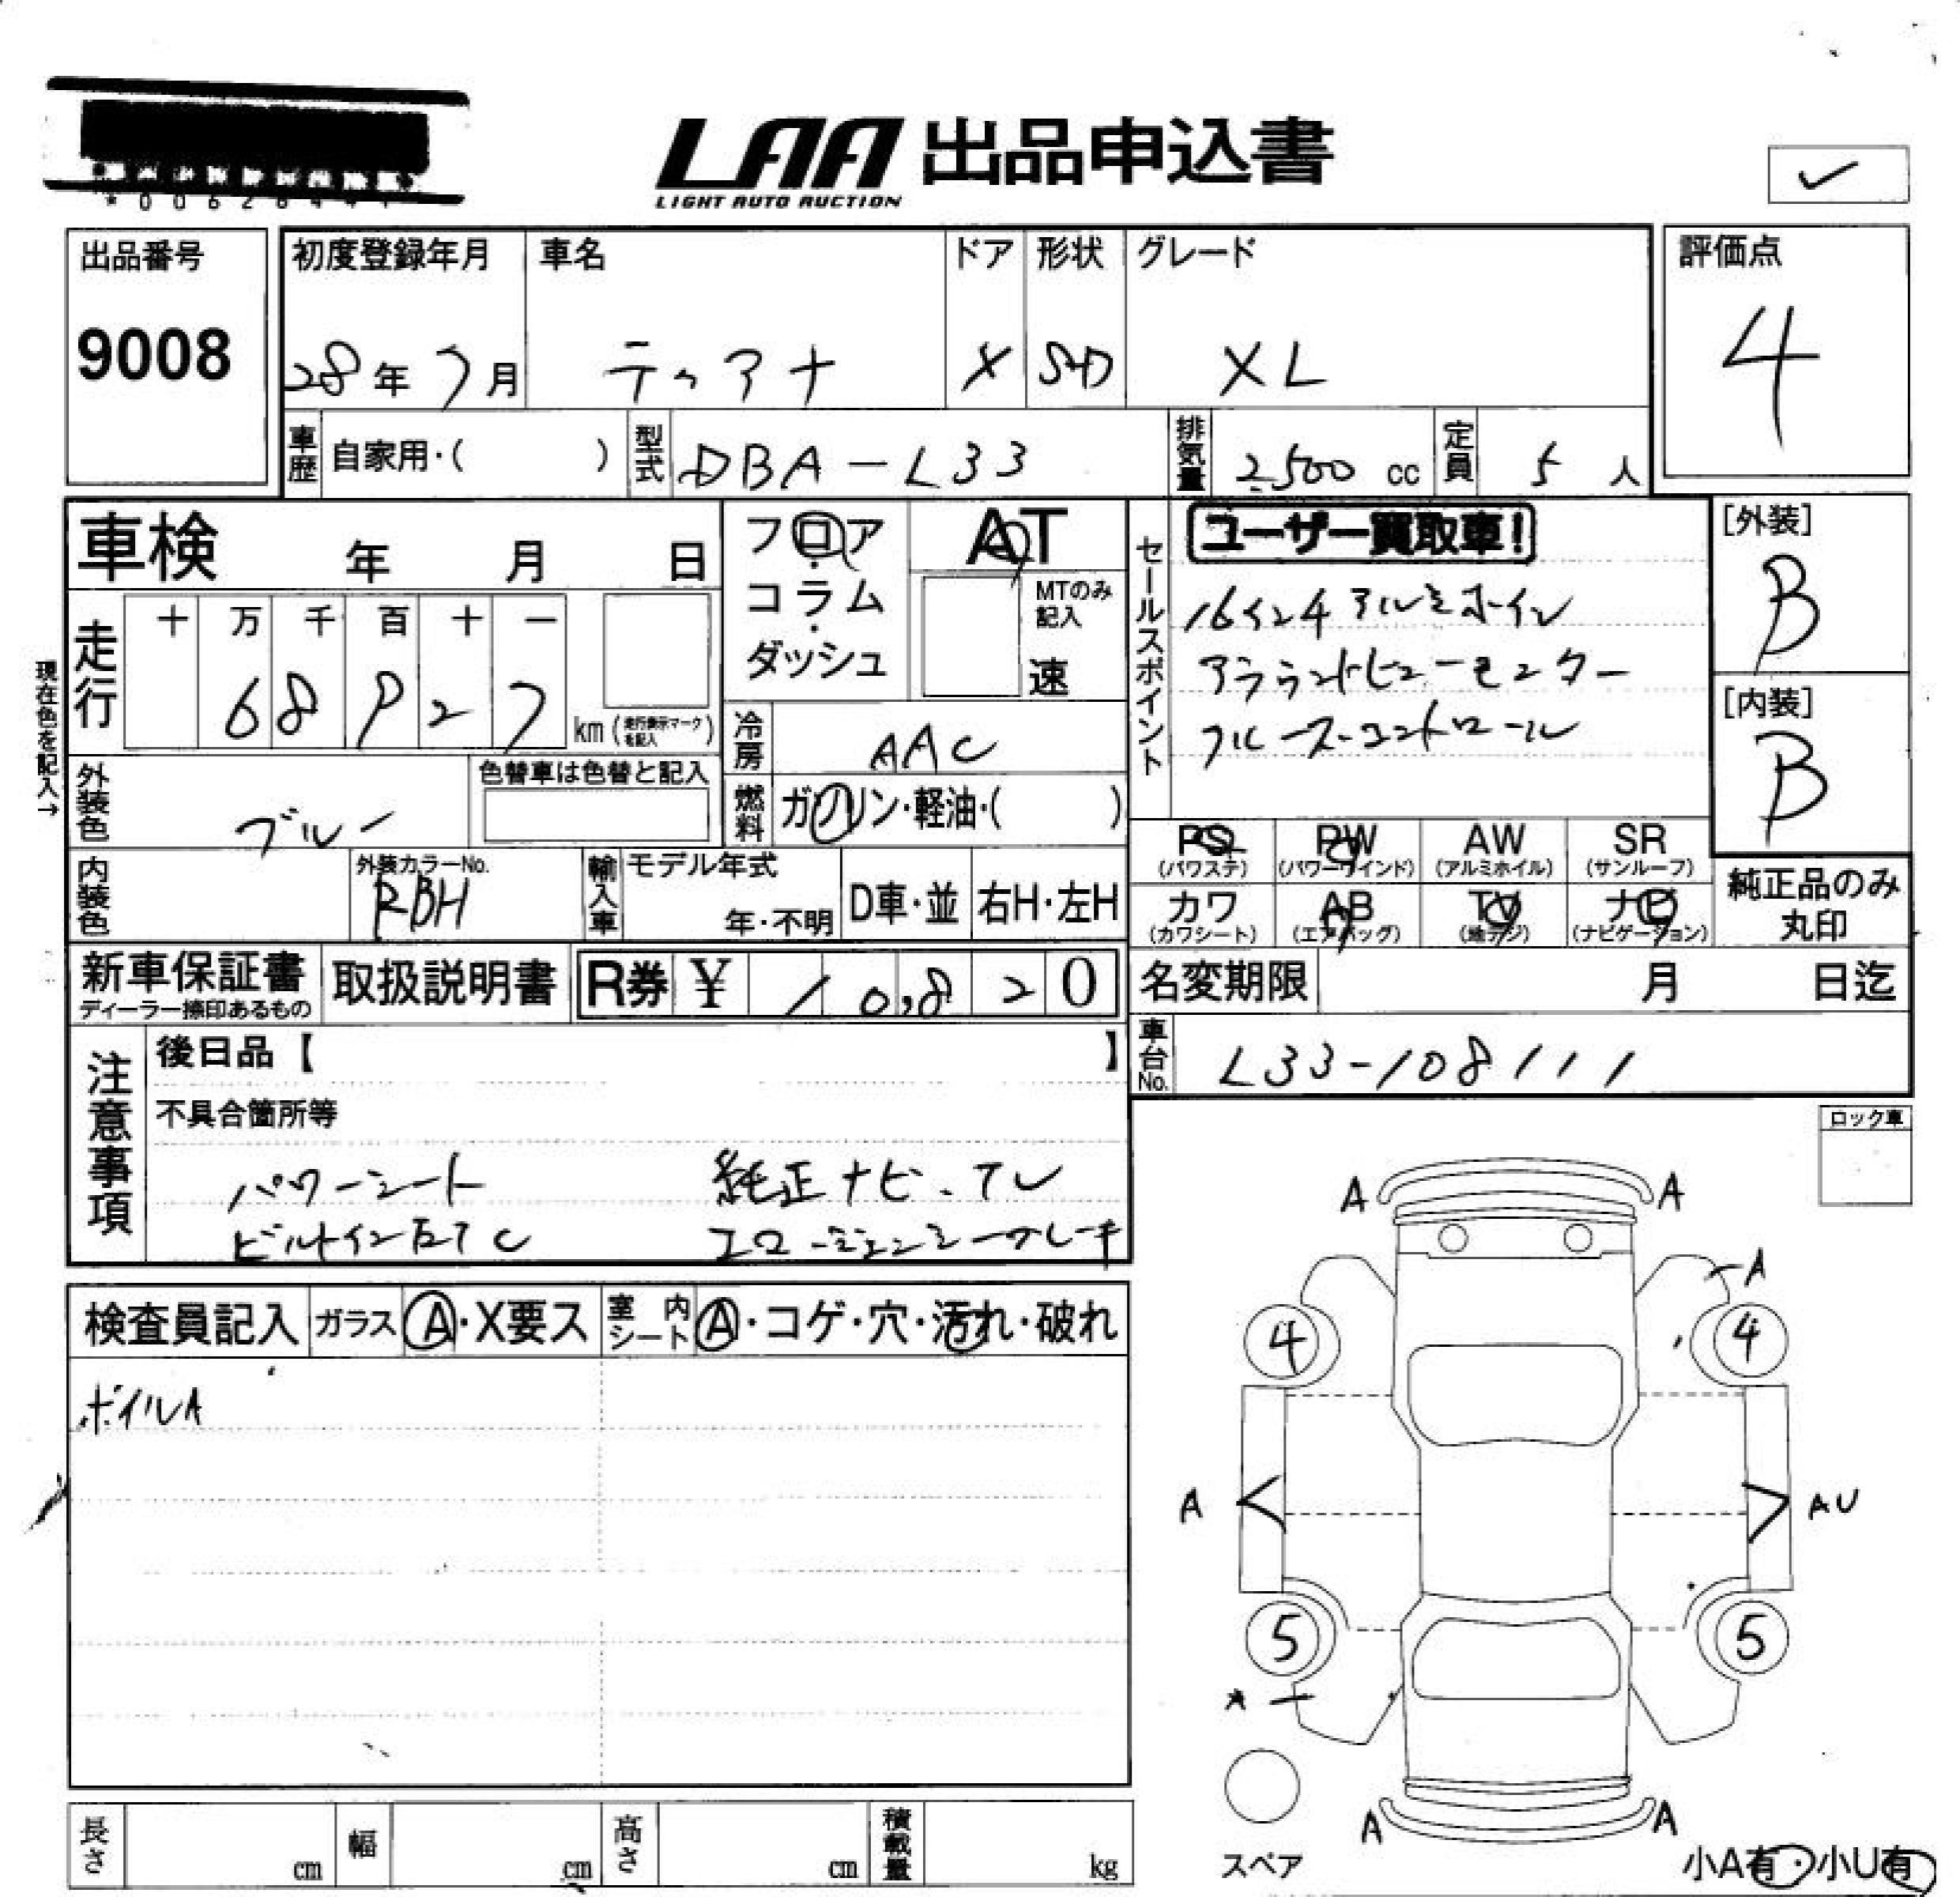 LAA 出品申込書
LIGHT AUTO AUCTION
出品番号
9008
初度登録年月
28年7月
車名
ティアナ
ドア
X
形状
SD
グレード
XL
評価点
4
車歴
自家用・( )
型式
DBA-L33
排気量
2,500 cc
定員
5 人
車検 年 月 日
フロア
コラム
ダッシュ
AT
MTのみ
記入
速
セールスポイント
ユーザー買取車!
16インチアルミホイル
アラウンドビューモニター
クルーズコントロール
[外装]
B
[内装]
B
現在色を記入→
走行
十 万 千 百 十 一
6 8 9 2 7
km (走行表示マークを記入)
冷房
AAC
外装色
ブルー
色替車は色替と記入
燃料
ガソリン・軽油・( )
PS
(パワステ)
PW
(パワーウインド)
AW
(アルミホイル)
SR
(サンルーフ)
カワ
(カワシート)
AB
(エアバッグ)
TV
(地デジ)
ナビ
(ナビゲーション)
純正品のみ
丸印
内装色
外装カラーNo.
RBH
輸入車
モデル年式
年・不明
D車・並
右H・左H
新車保証書
ディーラー捺印あるもの
取扱説明書
R券 ¥ 10,820
名変期限 月 日迄
車台No.
L33-108111
注意事項
後日品【 】
不具合箇所等
パワーシート 純正ナビ.TV
ビルトインETC
ロック車
検査員記入
ガラス
A・X要ス
室内シート
A・コゲ・穴・汚れ・破れ
ホイルA
A A
A
4 4
A AU
5 5
A
スペア
A A
小A有・小U有
長さ cm
幅 cm
高さ cm
積載量 kg